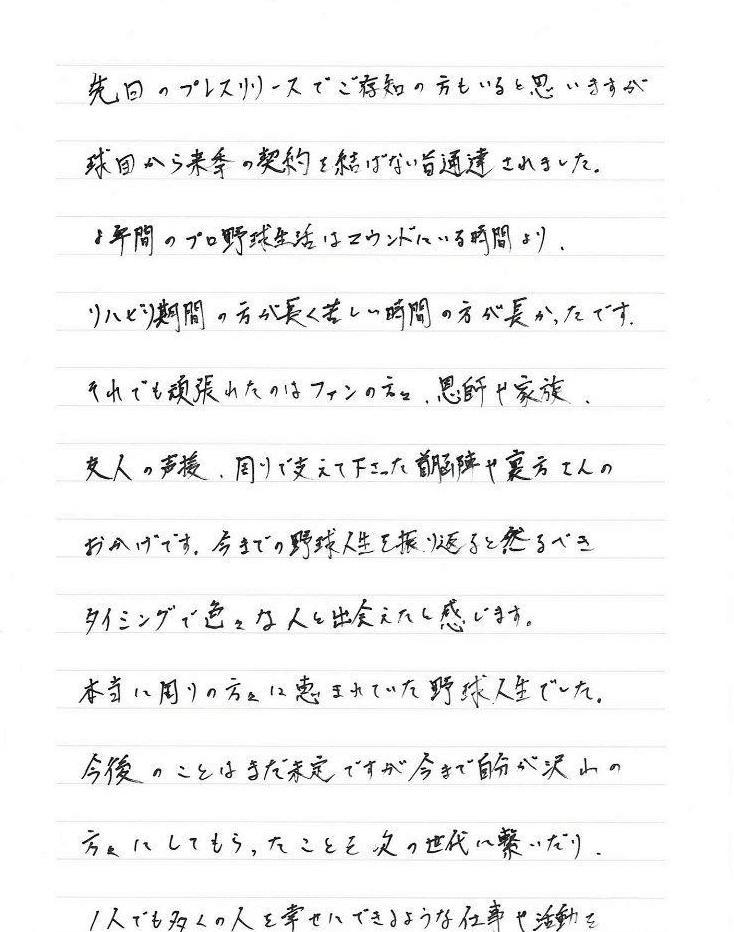 先日のプレスリリースでご存知の方もいると思いますが
球団から来季の契約を結ばない旨通達されました。
年間のプロ野球生活はマウンドにいる時間より、
リハビリ期間の方が長く苦しい時間の方が長かったです。
それでも頑張れたのはファンの方々、恩師や家族、
友人の声援、周りで支えて下さった首脳陣や裏方さんの
おかげです。今までの野球人生を振り返ると然るべき
タイミングで色々な人と出会えたと感じます。
本当に周りの方々に恵まれていた野球人生でした。
今後のことはまだ未定ですが今まで自分が沢山の
方々にしてもらったことを次の世代に繋いだり、
1人でも多くの人を幸せにできるような仕事や活動を